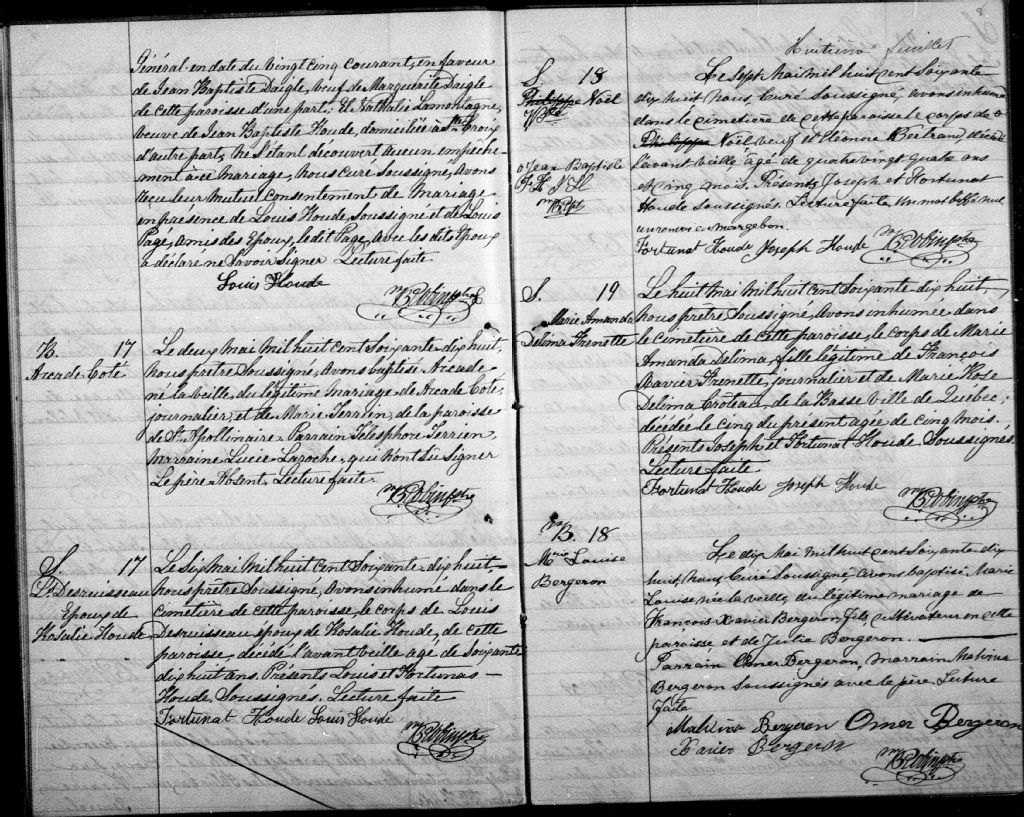 Général en date du vingt cinq courant, en faveur
de Jean Baptiste Daigle, veuf de Marguerite Daigle
de cette paroisse d'une part; Et Nathalie Lamontagne,
veuve de Jean Baptiste Houde, domiciliés à Ste Croix
d'autre part, Ne s'étant découvert aucun empêche-
ment à ce mariage, nous curé soussigné, avons
reçu leur mutuel consentement de mariage
en présence de Louis Houde, soussigné et de Louis
Pagé, amis des Epoux, le dit Pagé, avec les dits Epoux
a déclaré ne savoir signer Lecture faite
Louis Houde
B. 17
Arcade Coté
Le deux mai mil huit cent soixante-dix huit,
nous prêtre soussigné, avons baptisé Arcade
né la veille, du légitime mariage de Arcade Coté,
journalier, et de Marie Terrien, de la paroisse
de St Apollinaire. Parrain Télesphore Terrien,
marraine Lucie Laroche, qui n'ont su signer
Le père Absent. Lecture faite.
S. 17
Ls Desruisseau
Epoux de
Rosalie Houde
Le Six Mai Mil huit cent soixante-dix huit
nous prêtre soussigné, avons inhumé dans le
cimetière de cette paroisse, le corps de Louis
Desruisseau, époux de Rosalie Houde, de cette
paroisse, décédé l'avant veille agé de soixante
dix huit ans. Présents Louis et Fortunat
Houde soussignés. Lecture faite
Fortunat Houde Louis Houde
8
Huitième feuillet
S. 18
Philippe Noël
o Jean Baptiste
F. H J H
Le Sept Mai Mil huit cent soixante
dix huit nous, Curé soussigné, avons inhumé
dans le cimetière de cette paroisse le corps de o
Philippe Noël veuf et Eléonore Bertrand, décédé
l'avant veille agé de quatre vingt quatre ans
et cinq mois. Présents, Joseph et Fortunat
Houde soussignés. Lecture faite. Un mot biffé nul
un renvoi en marge bon.
Fortunat Houde Joseph Houde
S. 19
Marie Amanda
Délima Frenette
Le huit mai mil huit cent soixante-dix huit,
nous prêtre soussigné, avons inhumée dans
le cimetière de cette paroisse, le corps de Marie
Amanda Délima, fille légitime de François
Xavier Frenette, journalier et de Marie Rose
Délima Croteau, de la Basse Ville de Québec,
décédée le cinq du présent agée de cinq mois.
Présents Joseph et Fortunat Houde soussignés.
Lecture faite
Fortunat Houde Joseph Houde
B. 18
Mrie Louise
Bergeron
Le dix mai mil huit cent soixante-dix
huit, nous Curé soussigné avons baptisé Marie
Louise née la veille, du légitime mariage de
François-Xavier Bergeron fils, cultivateur en cette
paroisse, et de Julie Bergeron.
Parrain Omer Bergeron, marraine Malvina
Bergeron soussignés avec le père. Lecture
faite
Malvina Bergeron Omer Bergeron
Xavier Bergeron